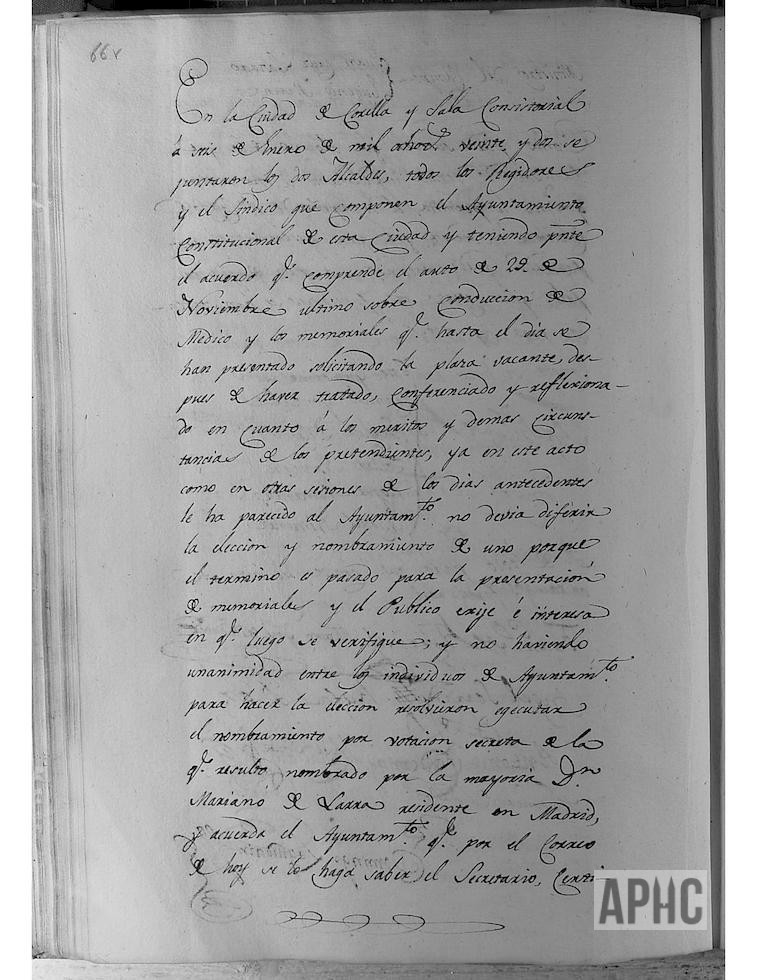 66v
En la Ciudad de Corella y Sala Consistorial
á seis de Enero de mil ochos. veinte y dos se
juntaron los dos Alcaldes, todos los Regidores
y el Sindico que componen el Ayuntamiento
Constitucional de esta Ciudad y teniendo pnte
el acuerdo q.e comprende el auto de 29 de
Noviembre ultimo sobre Conduccion de
Medico y los memoriales q.e hasta el dia se
han presentado solicitando la plaza vacante, des-
pues de haver tratado, Conferenciado y reflexiona-
do en Cuanto á los meritos y demas Circuns-
tancias de los pretendientes, ya en este acto
como en otras sesiones de los dias antecedentes
le ha parecido al Ayuntam.to no devia diferir
la eleccion y nombramiento de uno porque
el termino es pasado para la presentacion
de memoriales y el Publico exije é interesa
en q.e luego se verifique; y no haviendo
unanimidad entre los individuos de Ayuntam.to
para hacer la eleccion resolvieron egecutar
el nombramiento por votacion secreta de la
q.e resulto nombrado por la mayoria D.n
Mariano de Larra residente en Madrid,
y acuerda el Ayuntam.to q.e por el Correo
de hoy se le haga saber el Secretario, Certi
APHC